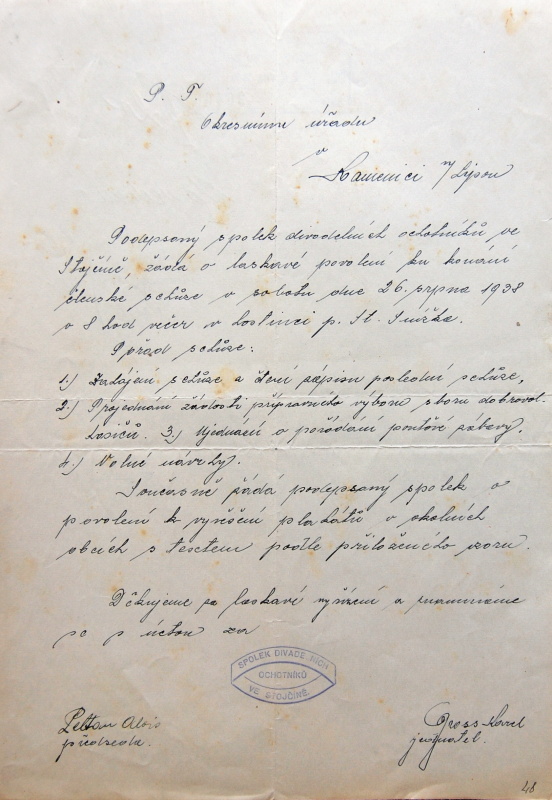 P. T.
Okresnímu úřadu
v
Kamenici n/Lipou
Podepsaný spolek divadelních ochotníků ve
Stojčíně, žádá o laskavé povolení ku konání
členské schůze v sobotu dne 26. srpna 1938
o 8 hod večer v hostinci p. St.
Pořad schůze:
1.) Zahájení schůze a čtení zápisu poslední schůze,
2.) Projednání žádosti přípravného výboru sboru dobrovol-
hasičů. 3.) Ujednání o pořádání pouťové zábavy.
4.) Volné návrhy.
Současně žádá podepsaný spolek o
povolení k vyvěšení plakátů v okolních
obcích s textem podle přiloženého vzoru.
Děkujeme za laskavé vyřízení a znamenáme
se s úctou za
SPOLEK DIVADELNÍCH
OCHOTNÍKŮ
VE STOJČÍNĚ.
Peltan Alois
předseda.
Karel
jednatel.
48